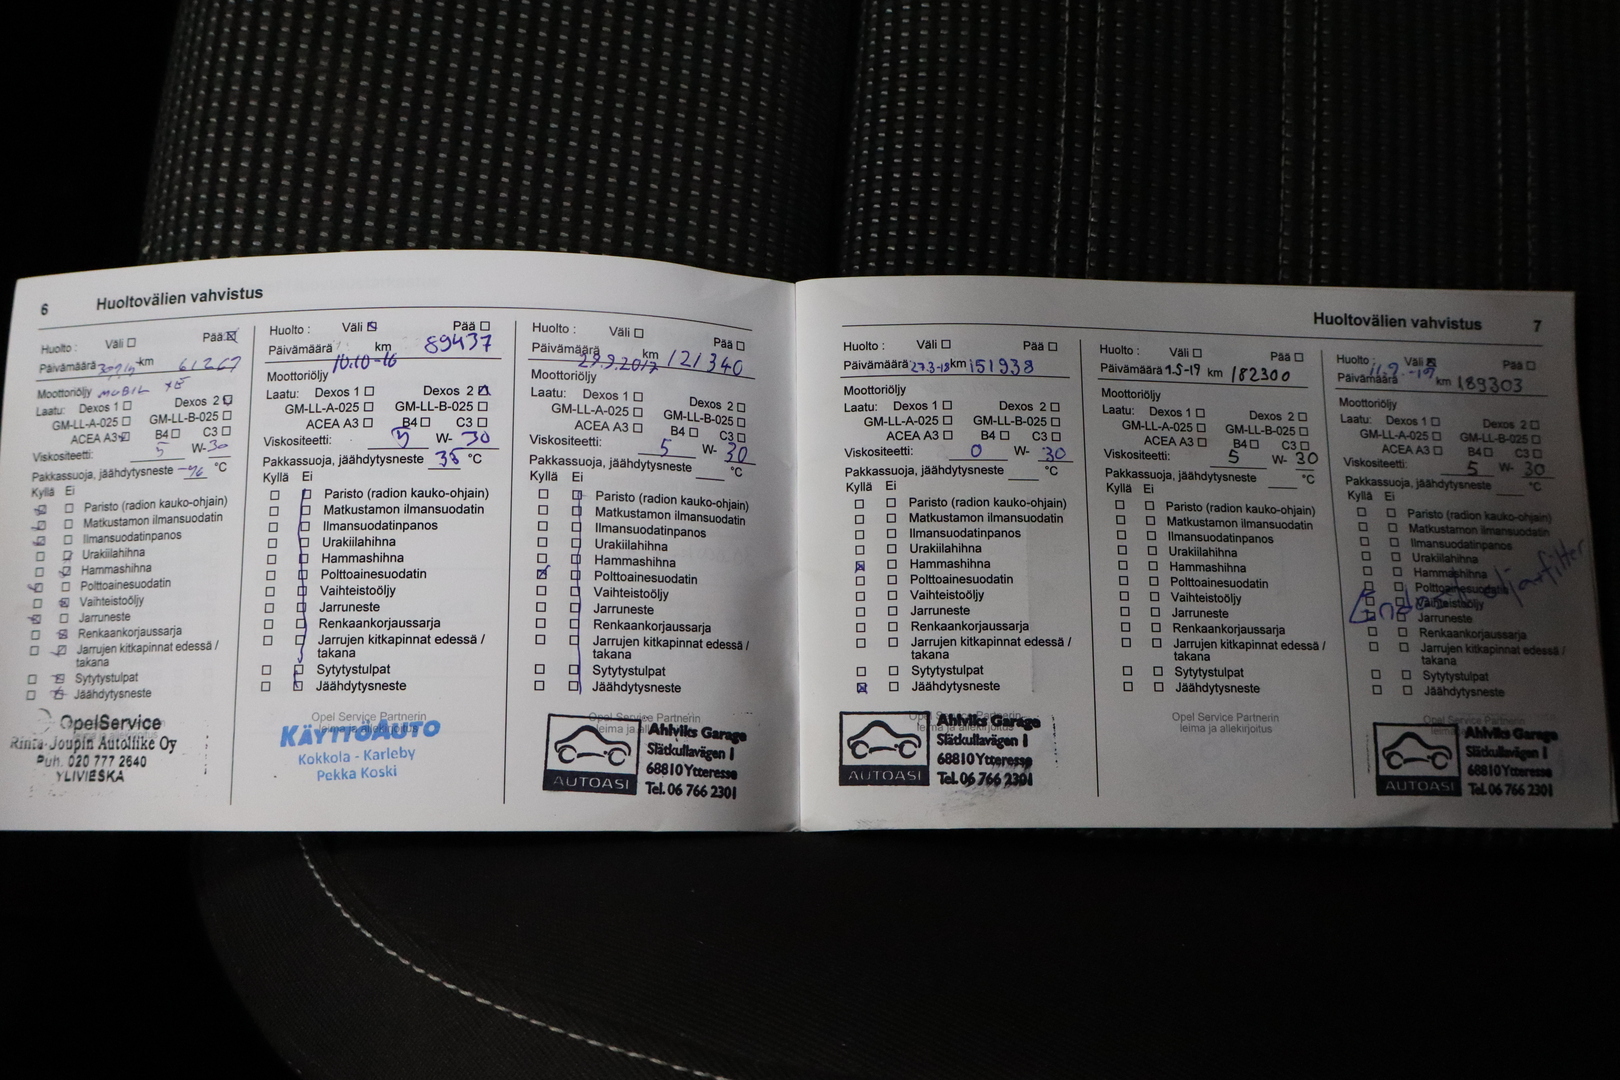 6 Huoltovälien vahvistus
Huolto : Väli Pää
Päivämäärä km 61267
Moottoriöljy MOBIL
Laatu: Dexos 1 Dexos 2
GM-LL-A-025 GM-LL-B-025
ACEA A3 B4 C3
Viskositeetti: 5 W- 30
Pakkassuoja, jäähdytysneste °C
Kyllä Ei
Paristo (radion kauko-ohjain)
Matkustamon ilmansuodatin
Ilmansuodatinpanos
Urakiilahihna
Hammashihna
Polttoainesuodatin
Vaihteistoöljy
Jarruneste
Renkaankorjaussarja
Jarrujen kitkapinnat edessä /
takana
Sytytystulpat
Jäähdytysneste
OpelService
Rinta-Joupin Autoliike Oy
Puh. 020 777 2640
YLIVIESKA
Huolto : Väli Pää
Päivämäärä 10.10-16 km 89437
Moottoriöljy
Laatu: Dexos 1 Dexos 2
GM-LL-A-025 GM-LL-B-025
ACEA A3 B4 C3
Viskositeetti: 5 W- 30
Pakkassuoja, jäähdytysneste 35 °C
Kyllä Ei
Paristo (radion kauko-ohjain)
Matkustamon ilmansuodatin
Ilmansuodatinpanos
Urakiilahihna
Hammashihna
Polttoainesuodatin
Vaihteistoöljy
Jarruneste
Renkaankorjaussarja
Jarrujen kitkapinnat edessä /
takana
Sytytystulpat
Jäähdytysneste
Opel Service Partnerin
leima ja allekirjoitus
KÄYTTÖAUTO
Kokkola - Karleby
Pekka Koski
Huolto : Väli Pää
Päivämäärä 29.9.2017 km 121340
Moottoriöljy
Laatu: Dexos 1 Dexos 2
GM-LL-A-025 GM-LL-B-025
ACEA A3 B4 C3
Viskositeetti: 5 W- 30
Pakkassuoja, jäähdytysneste °C
Kyllä Ei
Paristo (radion kauko-ohjain)
Matkustamon ilmansuodatin
Ilmansuodatinpanos
Urakiilahihna
Hammashihna
Polttoainesuodatin
Vaihteistoöljy
Jarruneste
Renkaankorjaussarja
Jarrujen kitkapinnat edessä /
takana
Sytytystulpat
Jäähdytysneste
Opel Service Partnerin
leima ja
AUTOASI
Ahlviks Garage
Slätkullavägen 1
68810 Ytteresse
Tel. 06 766 2301
Huoltovälien vahvistus 7
Huolto : Väli Pää
Päivämäärä 27.3-18 km 151938
Moottoriöljy
Laatu: Dexos 1 Dexos 2
GM-LL-A-025 GM-LL-B-025
ACEA A3 B4 C3
Viskositeetti: 0 W- 30
Pakkassuoja, jäähdytysneste °C
Kyllä Ei
Paristo (radion kauko-ohjain)
Matkustamon ilmansuodatin
Ilmansuodatinpanos
Urakiilahihna
Hammashihna
Polttoainesuodatin
Vaihteistoöljy
Jarruneste
Renkaankorjaussarja
Jarrujen kitkapinnat edessä /
takana
Sytytystulpat
Jäähdytysneste
AUTOASI
Ahlviks Garage
Slätkullavägen 1
68810 Ytteresse
Tel. 06 766 2301
Huolto : Väli Pää
Päivämäärä 1.5-19 km 182300
Moottoriöljy
Laatu: Dexos 1 Dexos 2
GM-LL-A-025 GM-LL-B-025
ACEA A3 B4 C3
Viskositeetti: 5 W- 30
Pakkassuoja, jäähdytysneste °C
Kyllä Ei
Paristo (radion kauko-ohjain)
Matkustamon ilmansuodatin
Ilmansuodatinpanos
Urakiilahihna
Hammashihna
Polttoainesuodatin
Vaihteistoöljy
Jarruneste
Renkaankorjaussarja
Jarrujen kitkapinnat edessä /
takana
Sytytystulpat
Jäähdytysneste
Opel Service Partnerin
leima ja allekirjoitus
Huolto : Väli Pää
Päivämäärä 11.9.-19 km 189303
Moottoriöljy
Laatu: Dexos 1 Dexos 2
GM-LL-A-025 GM-LL-B-025
ACEA A3 B4 C3
Viskositeetti: 5 W- 30
Pakkassuoja, jäähdytysneste °C
Kyllä Ei
Paristo (radion kauko-ohjain)
Matkustamon ilmansuodatin
Ilmansuodatinpanos
Urakiilahihna
Hammashihna
Polttoainesuodatin
Vaihteistoöljy
Jarruneste
Renkaankorjaussarja
Jarrujen kitkapinnat edessä /
takana
Sytytystulpat
Jäähdytysneste
Opel Service Partnerin
AUTOASI
Ahlviks Garage
Slätkullavägen 1
68810 Ytteresse
Tel. 06 766 2301